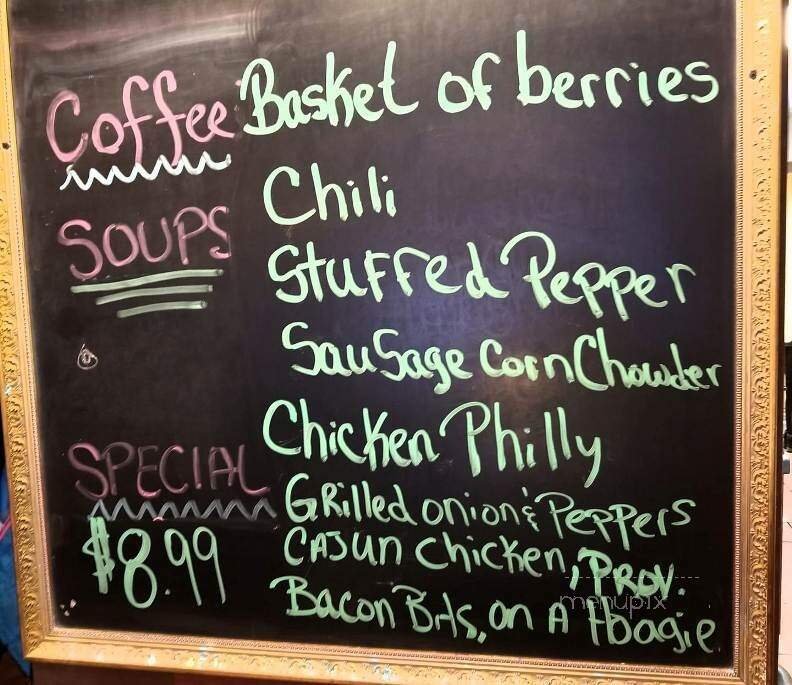 Coffee Basket of berries
SOUPS Chili
Stuffed Pepper
Sausage Corn Chowder
SPECIAL Chicken Philly
$8.99 Grilled onion & Peppers
Cajun chicken, Prov.
Bacon Bits, on A Hoagie
menupix